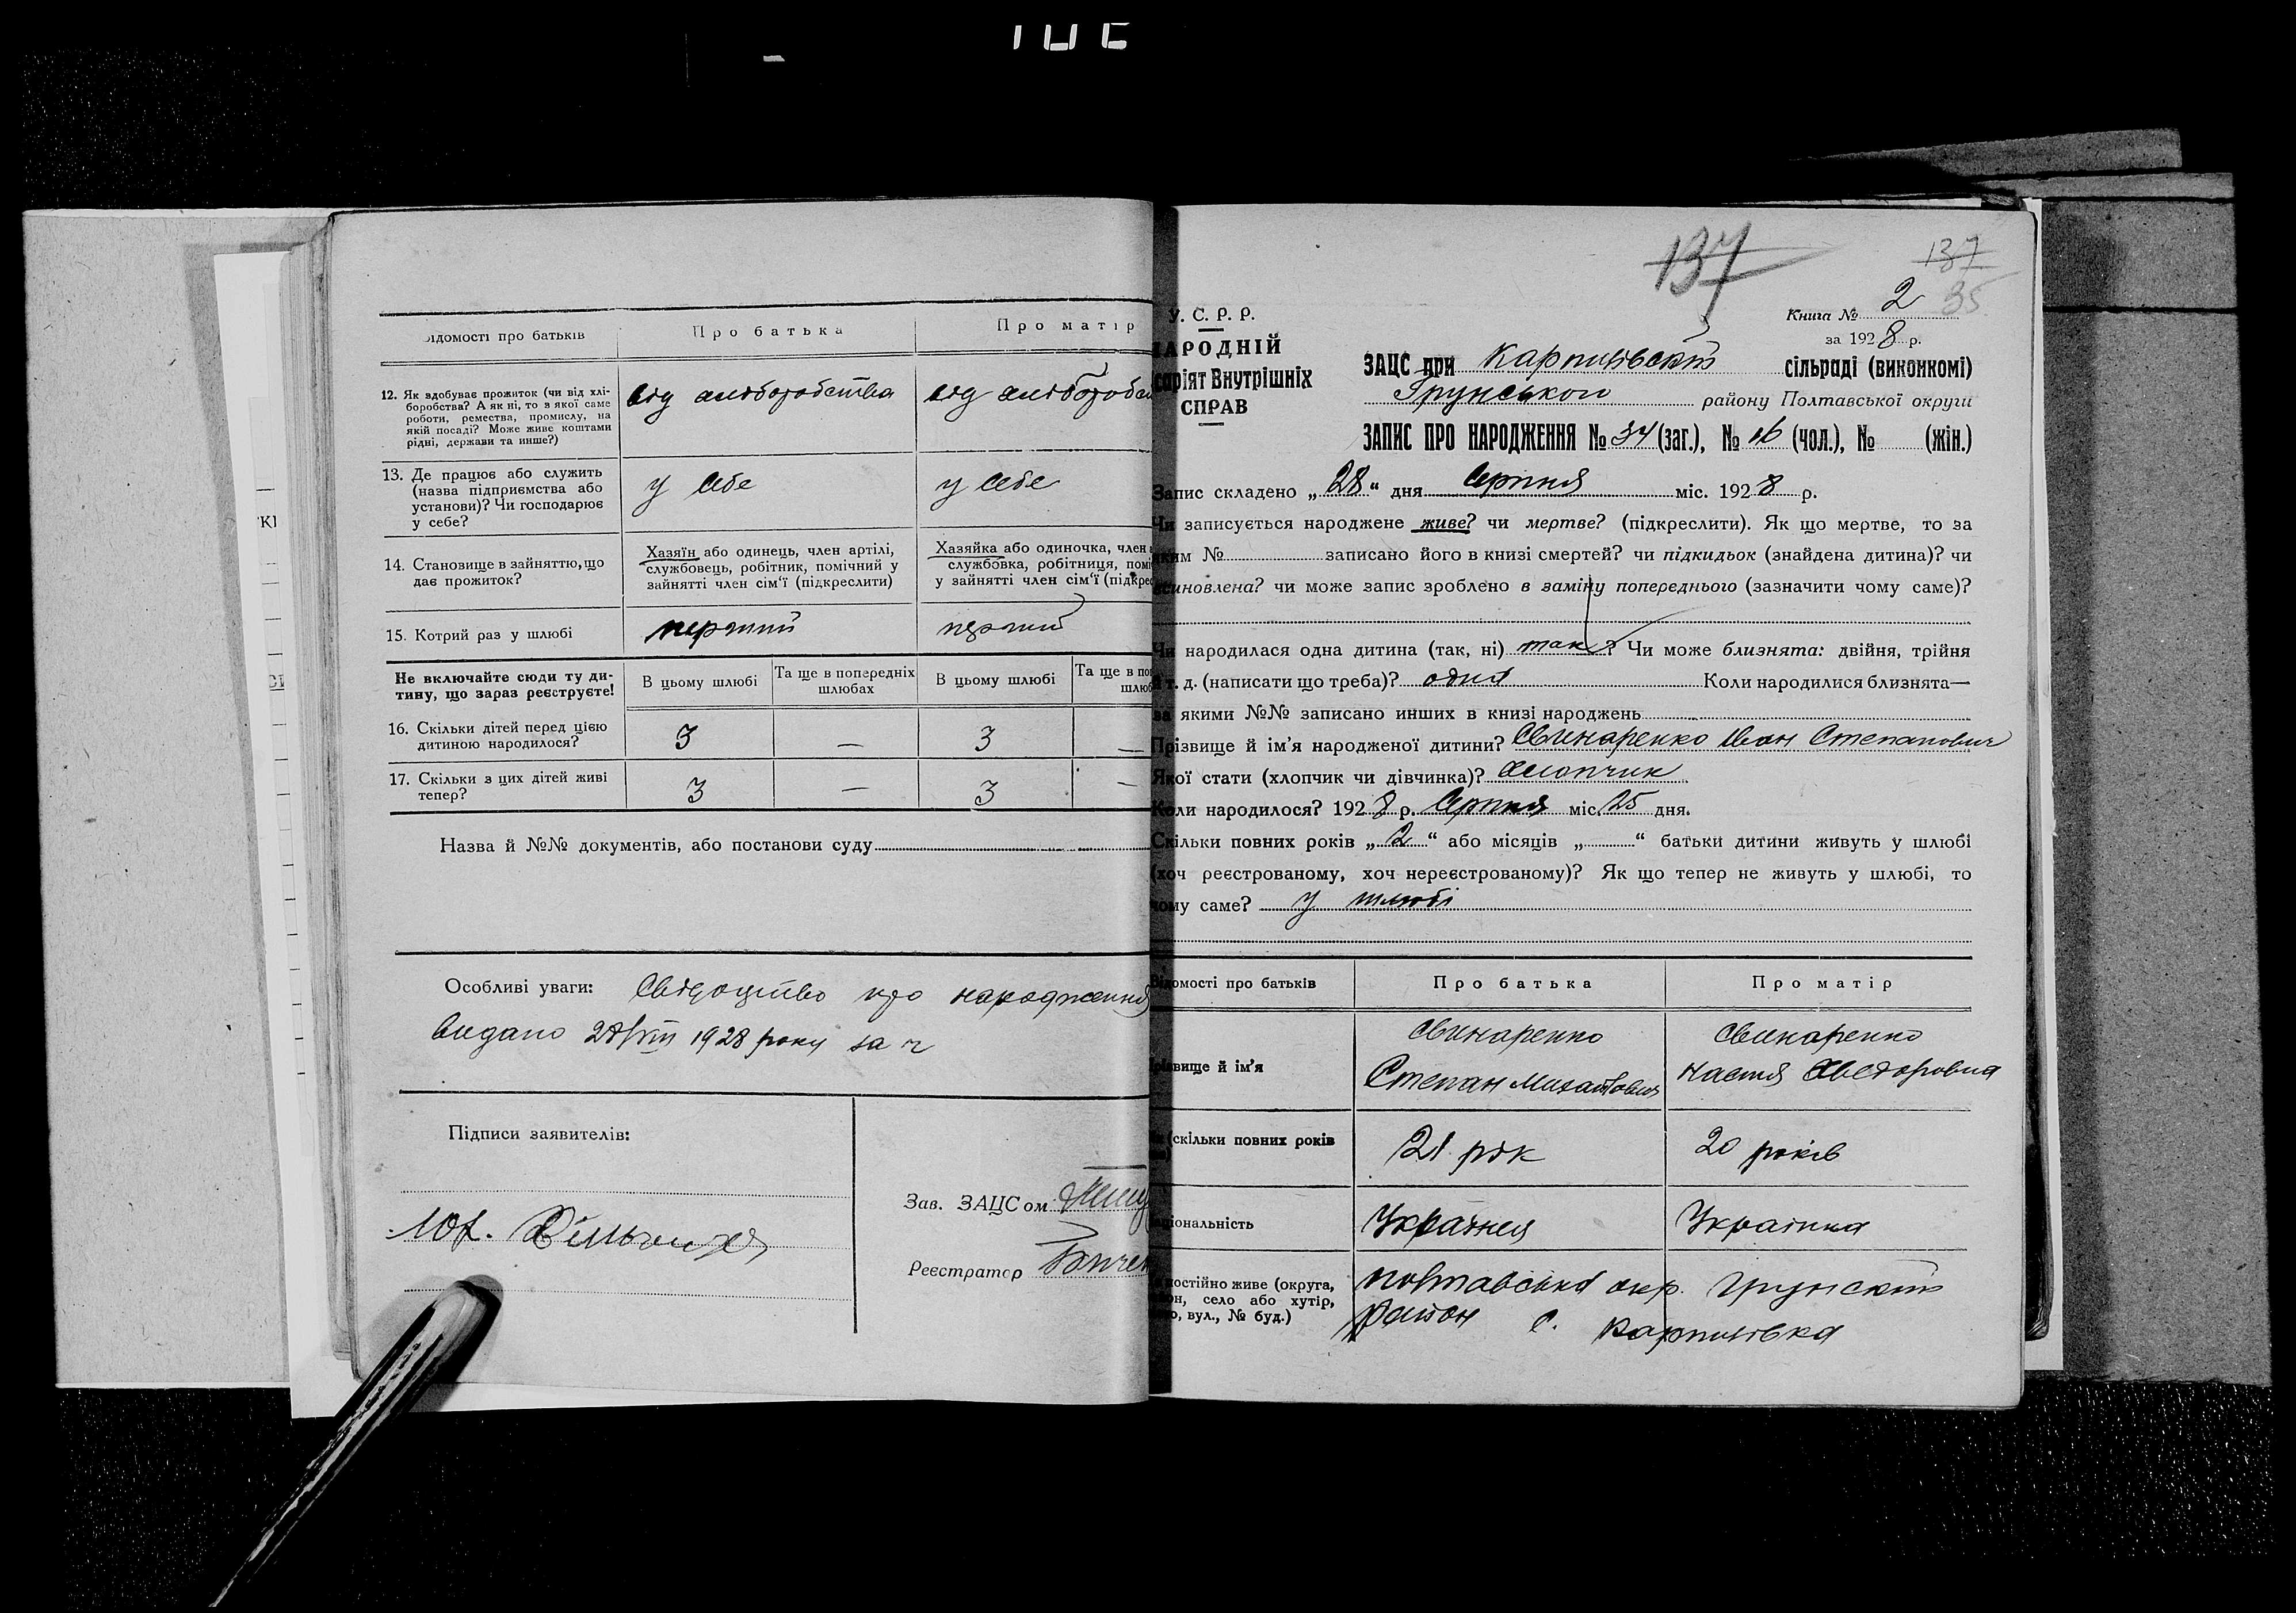 Відомості про батьків
Про батька
Про матір
12. Як здобуває прожиток (чи від хлі-
боробства? А як ні, то з якої саме
роботи, ремества, промислу, на
якій посаді? Може живе коштами
рідні, держави та инше?)
від хліборобства
від хліборобс
13. Де працює або служить
(назва підприємства або
установи)? Чи господарює
у себе?
у себе
у себе
14. Становище в зайняттю, що
дає прожиток?
Хазяїн або одинець, член артілі,
службовець, робітник, помічний у
зайнятті член сім'ї (підкреслити)
Хазяйка або одиночка, член
службовка, робітниця, помі
у зайнятті член сім'ї (підкрес
15. Котрий раз у шлюбі
перший
перший
Не включайте сюди ту ди-
тину, що зараз реєструєте!
В цьому шлюбі
Та ще в попередніх
шлюбах
В цьому шлюбі
Та ще в по
шлюб
16. Скільки дітей перед цією
дитиною народилося?
3 — 3 —
17. Скільки з цих дітей живі
тепер?
3 — 3 —
Назва й №№ документів, або постанови суду
Особливі уваги: Свідоцтво про народження
видано 28/VIII 1928 року за ч
Підписи заявителів:
Зав. ЗАЦСом
Реєстратор
137
137
35
У. С. Р. Р.
НАРОДНІЙ
саріят Внутрішніх
СПРАВ
Книга № 2
за 1928 р.
ЗАЦС при Карпилівській сільраді (виконкомі)
Грунського району Полтавської округи
ЗАПИС ПРО НАРОДЖЕННЯ № 34 (заг.), № 16 (чол.), № (жін.)
Запис складено „28“ дня Серпня міс. 1928 р.
Чи записується народжене живе? чи мертве? (підкреслити). Як що мертве, то за
яким № записано його в книзі смертей? чи підкидьок (знайдена дитина)? чи
всиновлена? чи може запис зроблено в заміну попереднього (зазначити чому саме)?
Чи народилася одна дитина (так, ні) так? Чи може близнята: двійня, трійня
і т. д. (написати що треба)? одня Коли народилися близнята—
за якими №№ записано инших в книзі народжень
Прізвище й ім'я народженої дитини? Свинаренко Іван Степанович
Якої стати (хлопчик чи дівчинка)? Хлопчик
Коли народилося? 1928 р. Серпня міс. 25 дня.
Скільки повних років „2“ або місяців „ “ батьки дитини живуть у шлюбі
(хоч реєстрованому, хоч нереєстрованому)? Як що тепер не живуть у шлюбі, то
чому саме? у шлюбі
Відомості про батьків
Про батька
Про матір
Прізвище й ім'я
Свинаренко
Степан Михайлович
Свинаренко
Настя Хведоровна
(скільки повних років
21 рік
20 років
Національність
Українец
Украінка
постійно живе (округа,
он, село або хутір,
о, вул., № буд.)
Полтавська окр. Грунський
район с. Карпилівка